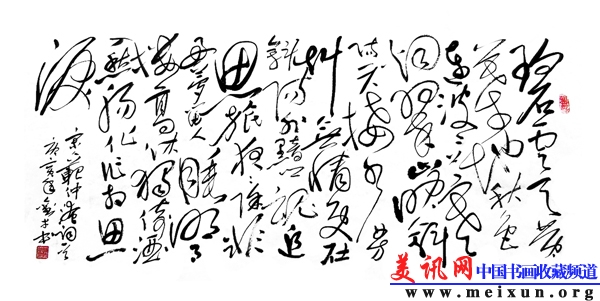 碧云天黄
叶地秋色
连波波上寒
烟翠山映斜
阳天接水芳
草无情更在
斜阳外黯乡魂追
思旅夜夜除非
好梦留人睡明月
楼高休独倚酒
入愁肠化作相思
泪
宋范仲淹词
美讯网中国书画收藏频道
www.meixun.org